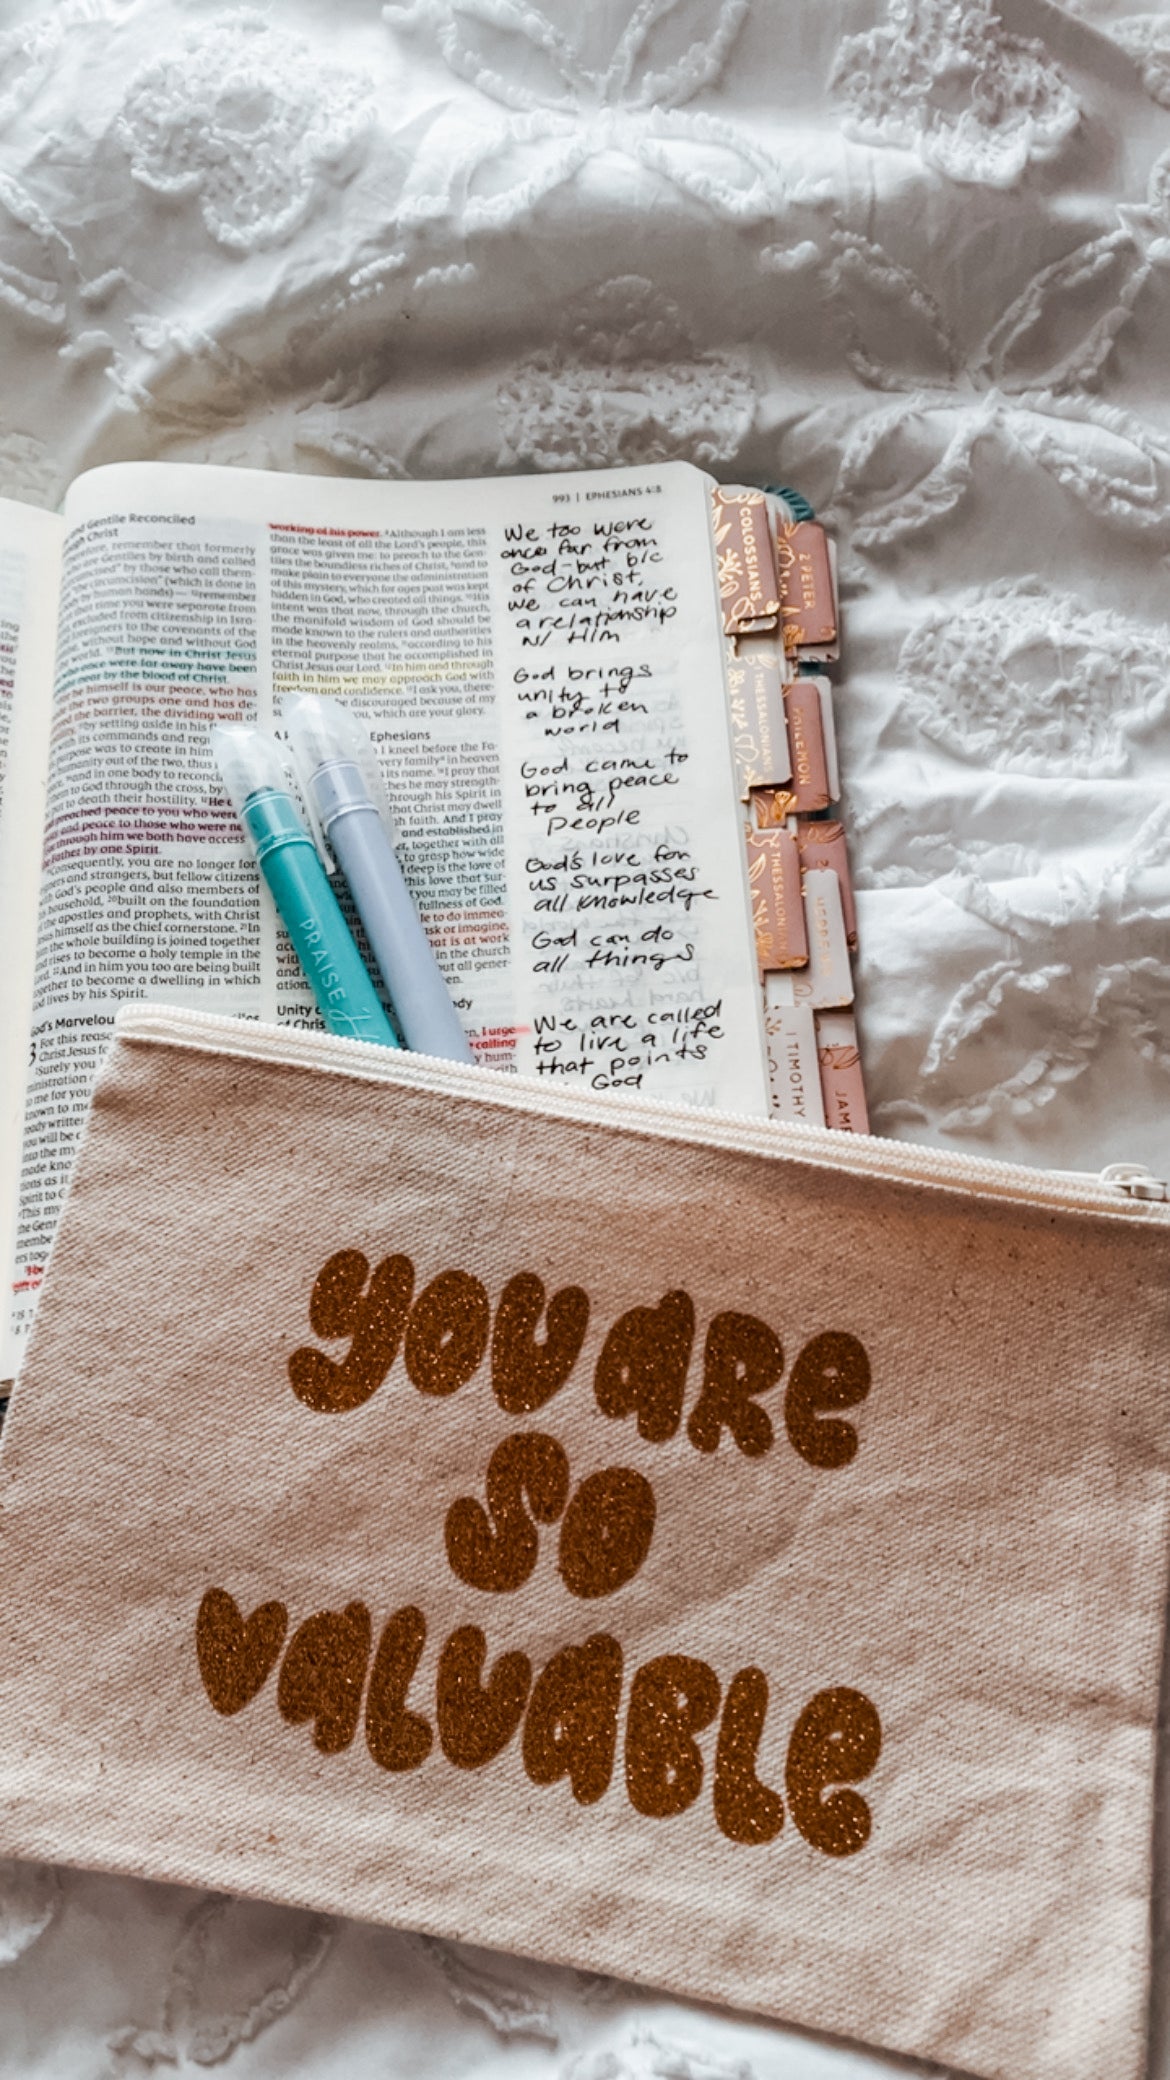 993 | EPHESIANS 4:8
and Gentile Reconciled
through Christ
remember that formerly
Gentiles by birth and called
by those who call them-
circumcision" (which is done in
by human hands)— ¹²remember
that time you were separate from
excluded from citizenship in Isra-
foreigners to the covenants of the
without hope and without God
the world. ¹³But now in Christ Jesus
who once were far away have been
near by the blood of Christ.
he himself is our peace, who has
the two groups one and has de-
the barrier, the dividing wall of
by setting aside in his
with its commands and
purpose was to create in him
humanity out of the two, thus
and in one body to
to God through the cross, by
to death their hostility. ¹⁷He
preached peace to you who were
and peace to those who were
through him we both have access
Father by one Spirit.
Consequently, you are no longer
and strangers, but fellow citizens
with God's people and also members of
household, ²⁰built on the foundation
apostles and prophets, with Christ
Jesus himself as the chief cornerstone. ²¹In
the whole building is joined together
and rises to become a holy temple in the
Lord. ²²And in him you too are being built
together to become a dwelling in which
God lives by his Spirit.
God's Marvelous
3 For this
Christ Jesus
Surely you
working of his power. ⁸Although I am less
than the least of all the Lord's people, this
grace was given me: to preach to the Gen-
tiles the boundless riches of Christ, ⁹and to
make plain to everyone the administration
of this mystery, which for ages past was kept
hidden in God, who created all things. ¹⁰His
intent was that now, through the church,
the manifold wisdom of God should be
made known to the rulers and authorities
in the heavenly realms, ¹¹according to his
eternal purpose that he accomplished in
Christ Jesus our Lord. ¹²In him and through
faith in him we may approach God with
freedom and confidence. ¹³I ask you, there-
be discouraged because of my
you, which are your glory.
Ephesians
I kneel before the Fa-
every family in heaven
its name. ¹⁶I pray that
he may strength-
through his Spirit in
that Christ may dwell
faith. And I pray
and established in
together with all
to grasp how wide
deep is the love of
this love that sur-
you may be filled
fullness of God.
to do immea-
ask or imagine,
that is at work
in the church
all gener-
Unity
of
I urge
calling
We too were
once far from
God-but b/c
of Christ,
we can have
a relationship
w/ Him
God brings
unity to
a broken
world
God came to
bring peace
to all
people
God's love for
us surpasses
all knowledge
God can do
all things
We are called
to live a life
that points
God
COLOSSIANS
2 PETER
THESSALONIANS
THESSALONIANS
1 TIMOTHY
PRAISE
YOU ARE
SO
VALUABLE